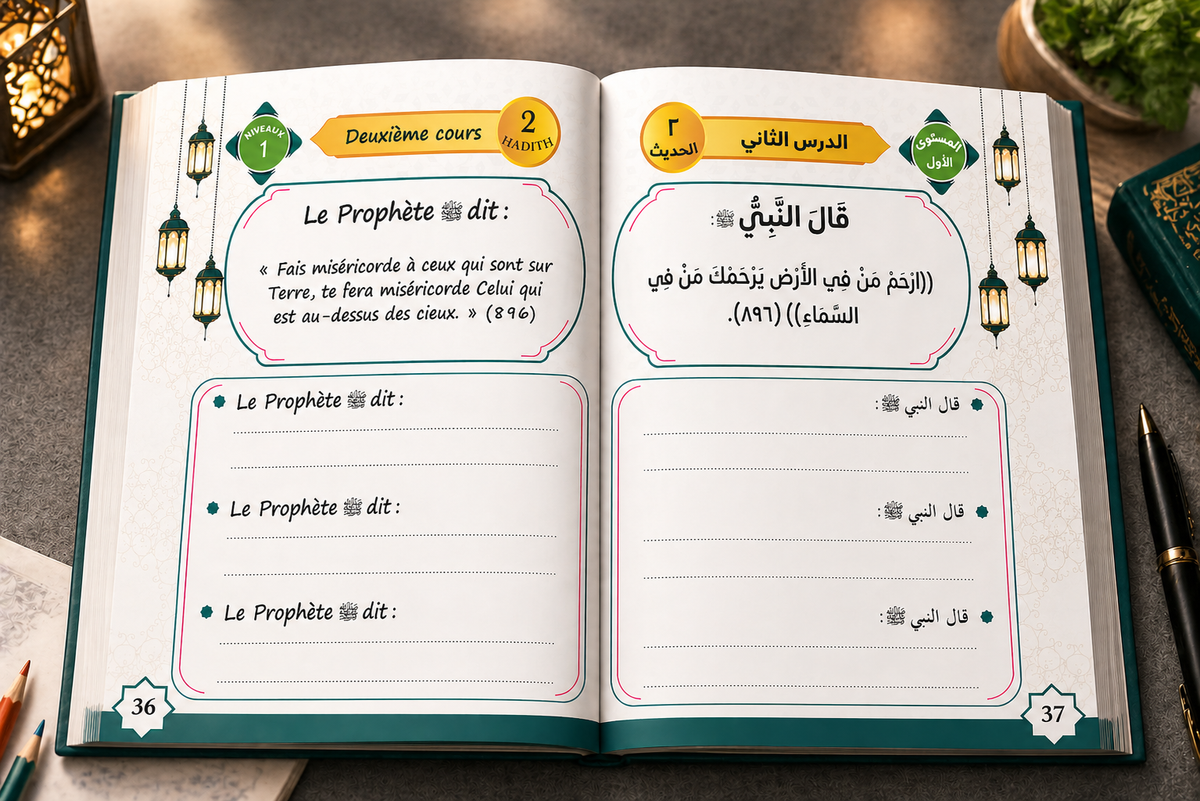 NIVEAUX
1
Deuxième cours
2
HADITH
Le Prophète ﷺ dit :
« Fais miséricorde à ceux qui sont sur
Terre, te fera miséricorde Celui qui
est au-dessus des cieux. » (896)
Le Prophète ﷺ dit :
Le Prophète ﷺ dit :
Le Prophète ﷺ dit :
36
٢
الحديث
الدرس الثاني
المستوى
الأول
قَالَ النَّبِيُّ ﷺ:
((ارْحَمْ مَنْ فِي الأَرْضِ يَرْحَمْكَ مَنْ فِي
السَّمَاءِ)) (٨٩٦).
قال النبي ﷺ:
قال النبي ﷺ:
قال النبي ﷺ:
37